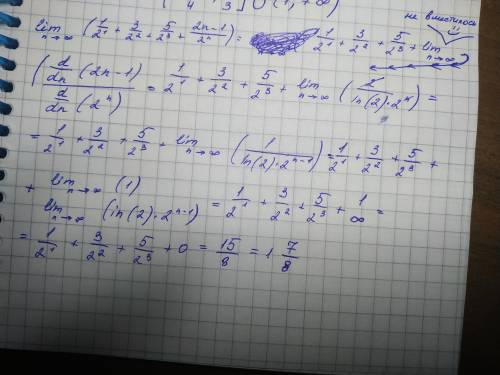 не вместилось
lim n→∞ (1/2^1 + 3/2^2 + 5/2^3 + (2n-1)/2^n) = 1/2^1 + 3/2^2 + 5/2^3 + lim n→∞
(d/dn (2n-1) / d/dn (2^n)) = 1/2^1 + 3/2^2 + 5/2^3 + lim n→∞ (2/(ln(2)·2^n)) =
= 1/2^1 + 3/2^2 + 5/2^3 + lim n→∞ (1/(ln(2)·2^(n-1))) = 1/2^1 + 3/2^2 + 5/2^3 +
+ lim n→∞ (1) / lim n→∞ (ln(2)·2^(n-1)) = 1/2^1 + 3/2^2 + 5/2^3 + 1/∞ =
= 1/2^1 + 3/2^2 + 5/2^3 + 0 = 15/8 = 1 7/8